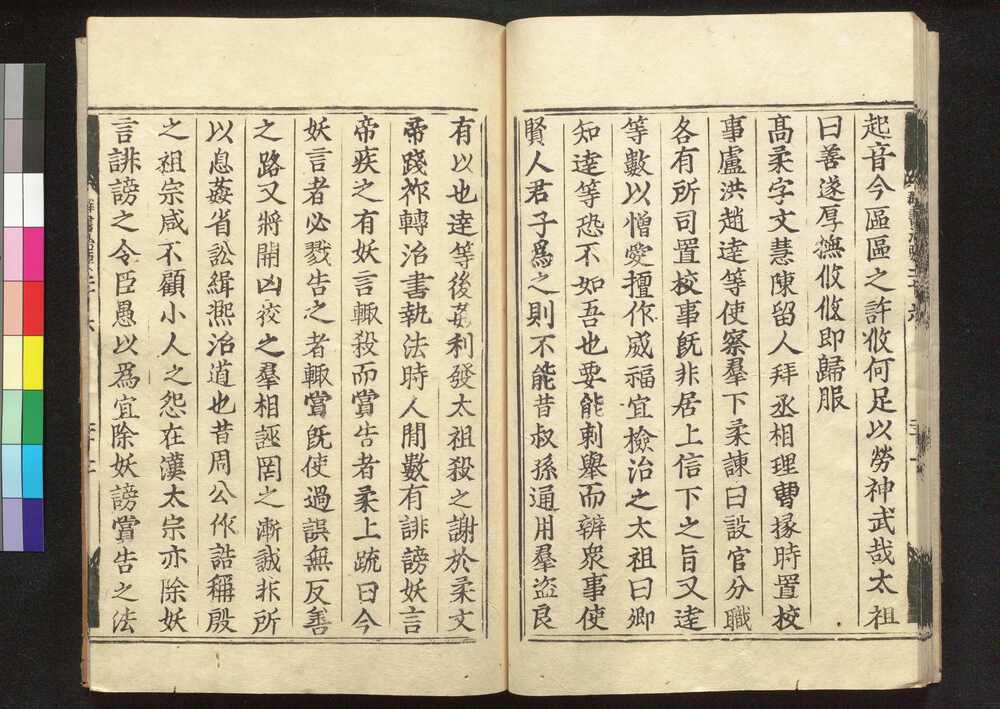 起音今區區之許攸何足以勞神武哉太祖
曰善遂厚撫攸攸即歸服
高柔字文慧陳留人拜丞相理曹掾時置校
事盧洪趙達等使察羣下柔諫曰設官分職
各有所司置校事旣非居上信下之旨又達
等數以憎愛擅作威福宜檢治之太祖曰卿
知達等恐不如吾也要能刺舉而辨衆事使
賢人君子爲之則不能昔叔孫通用羣盗良
有以也達等後姦利發太祖殺之謝於柔文
帝踐祚轉治書執法時人閒數有誹謗妖言
帝疾之有妖言輙殺而賞告者柔上疏曰今
妖言者必戮告之者輙賞旣使過誤無反善
之路又將開凶狡之羣相誣罔之漸誠非所
以息姦省訟緝熈治道也昔周公作誥稱殷
之祖宗咸不顧小人之怨在漢太宗亦除妖
言誹謗之令臣愚以爲宜除妖謗賞告之法